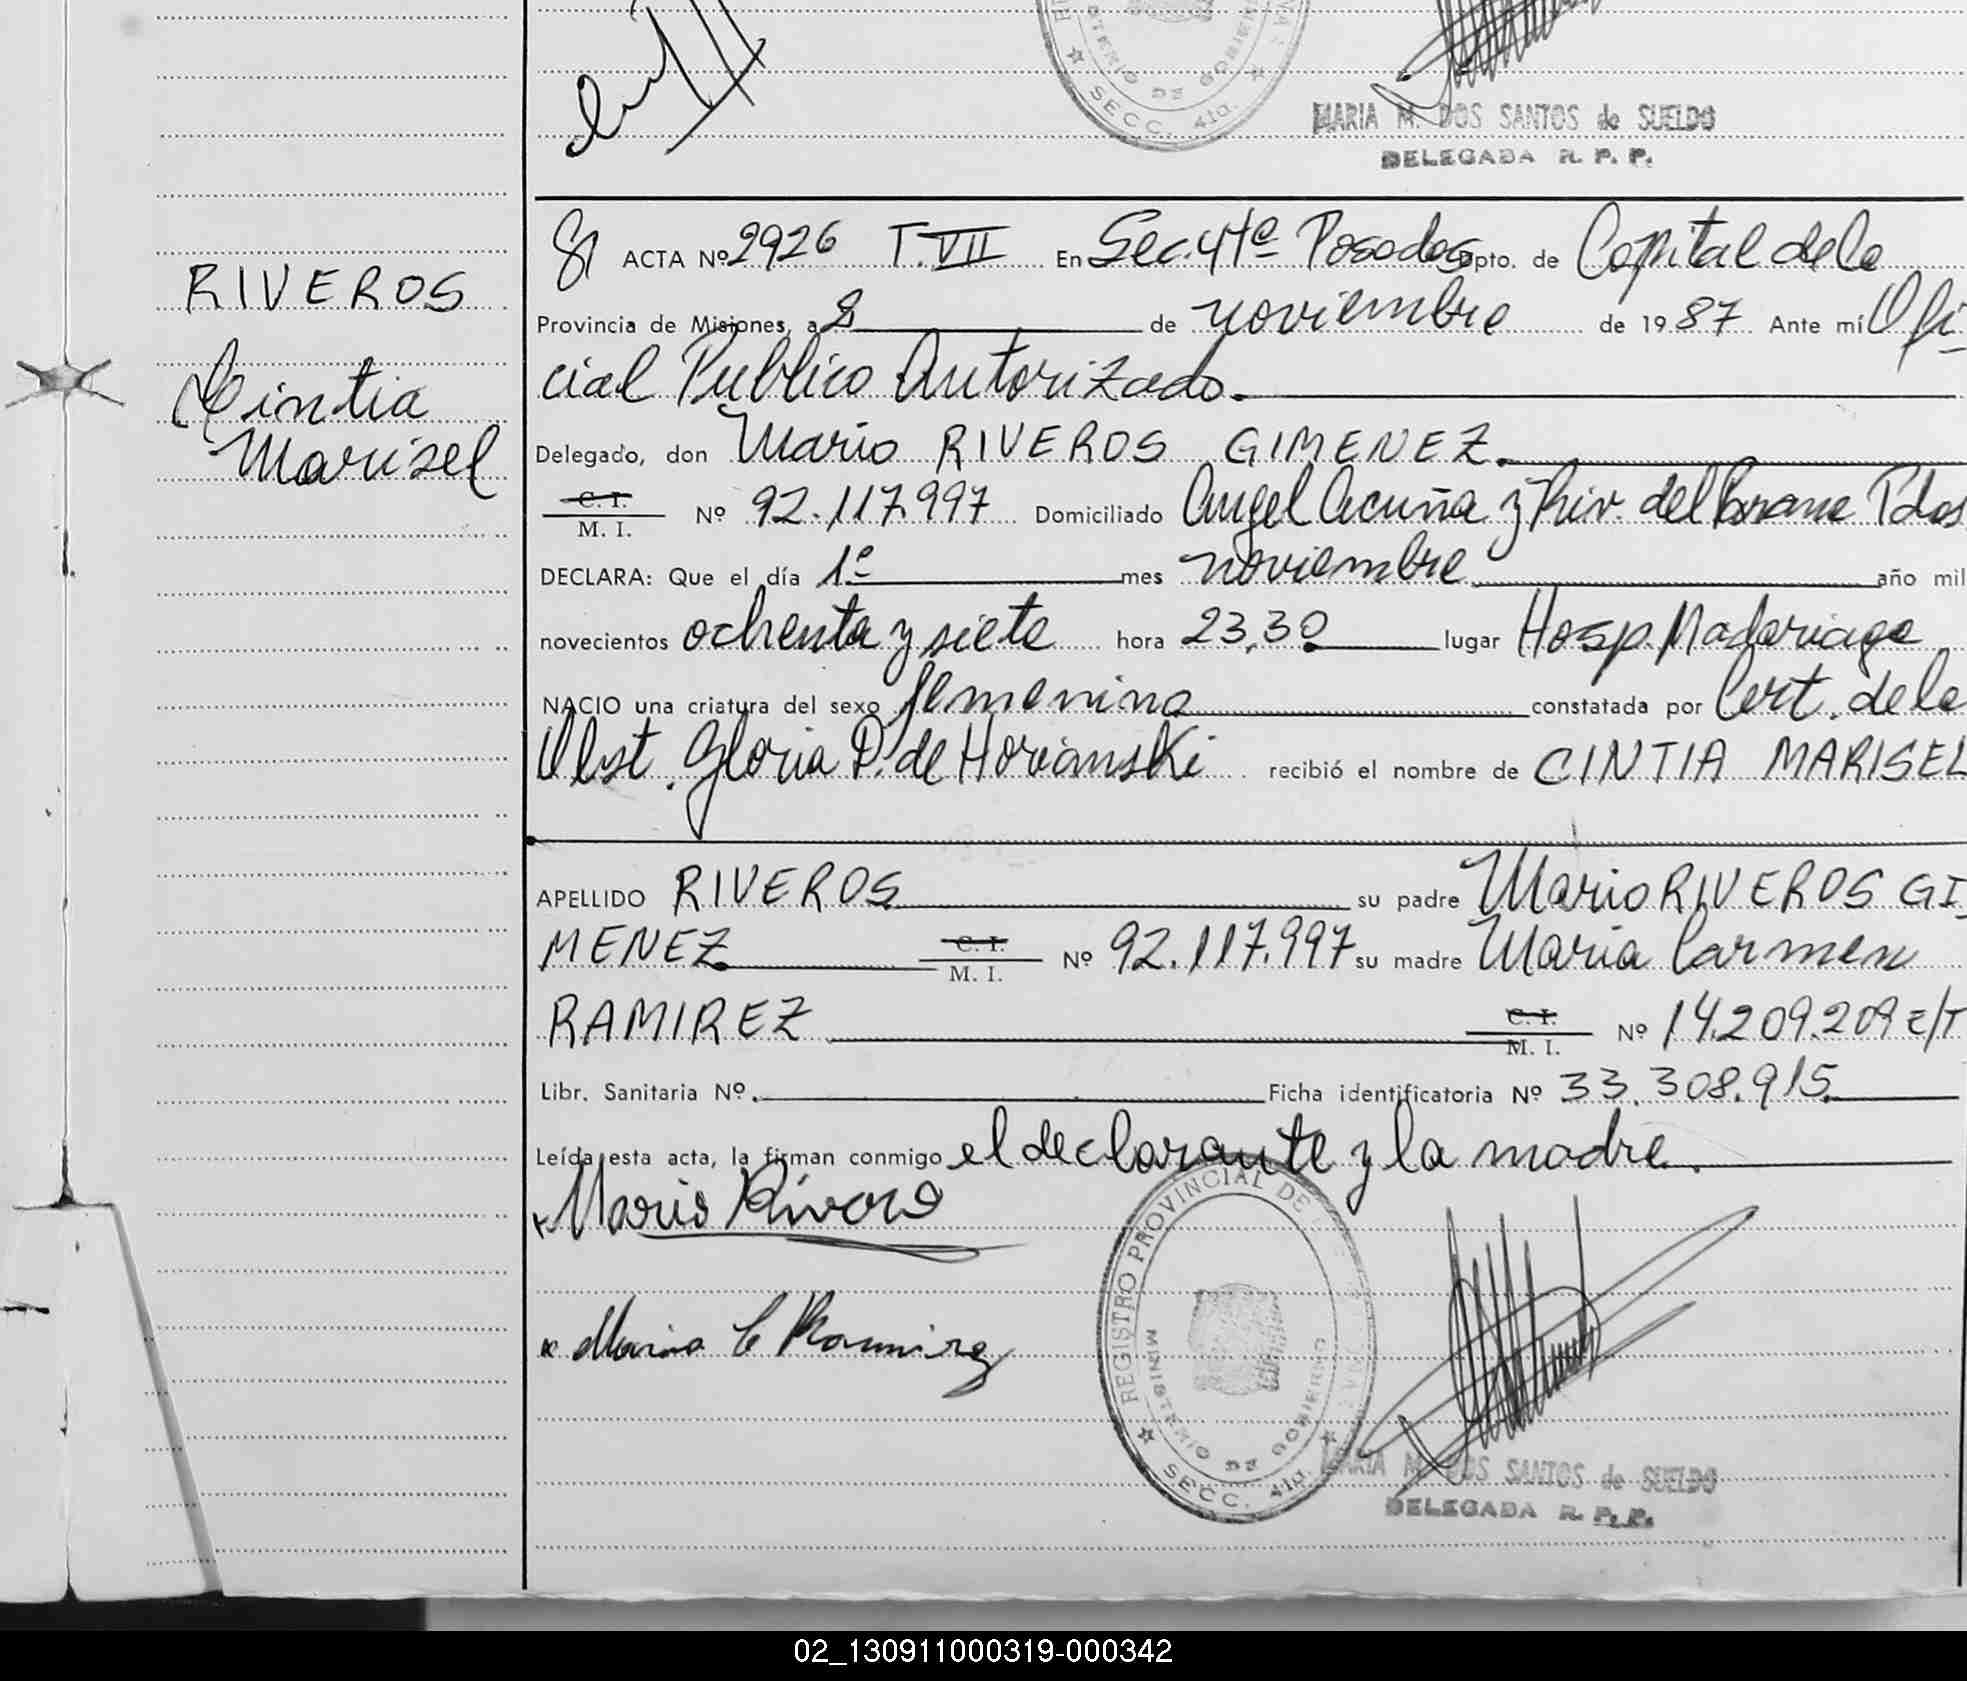 SECC. 4ta.
MINISTERIO DE GOBIERNO
MARIA M. DOS SANTOS de SUELDO
DELEGADA R. P. P.
RIVEROS
Cintia
Marisel
ACTA Nº 2926 T. VII En Sec. 4ta Posadas Dpto. de Capital de la
Provincia de Misiones, a 2 de noviembre de 1987 Ante mí Ofi-
cial Publico Autorizado.
Delegado, don Mario RIVEROS GIMENEZ.
C. I.
M. I. Nº 92.117.997 Domiciliado Angel Acuña y Riv. del Parana Pdas
DECLARA: Que el día 1º mes noviembre año mil
novecientos ochenta y siete hora 23,30 lugar Hosp. Madariaga
NACIO una criatura del sexo femenino constatada por Cert. de la
Obst. Gloria P. de Horianski recibió el nombre de CINTIA MARISEL
APELLIDO RIVEROS su padre Mario RIVEROS GI-
MENEZ C. I. M. I. Nº 92.117.997 su madre Maria Carmen
RAMIREZ C. I. M. I. Nº 14.209.209 E/T
Libr. Sanitaria Nº. Ficha identificatoria Nº 33.308.915
Leída esta acta, la firman conmigo el declarante y la madre.
Mario Riveros
Maria C Ramirez
REGISTRO PROVINCIAL DE
MINISTERIO DE GOBIERNO
SECC. 4ta.
MARIA M. DOS SANTOS de SUELDO
DELEGADA R. P. P.
02_130911000319-000342